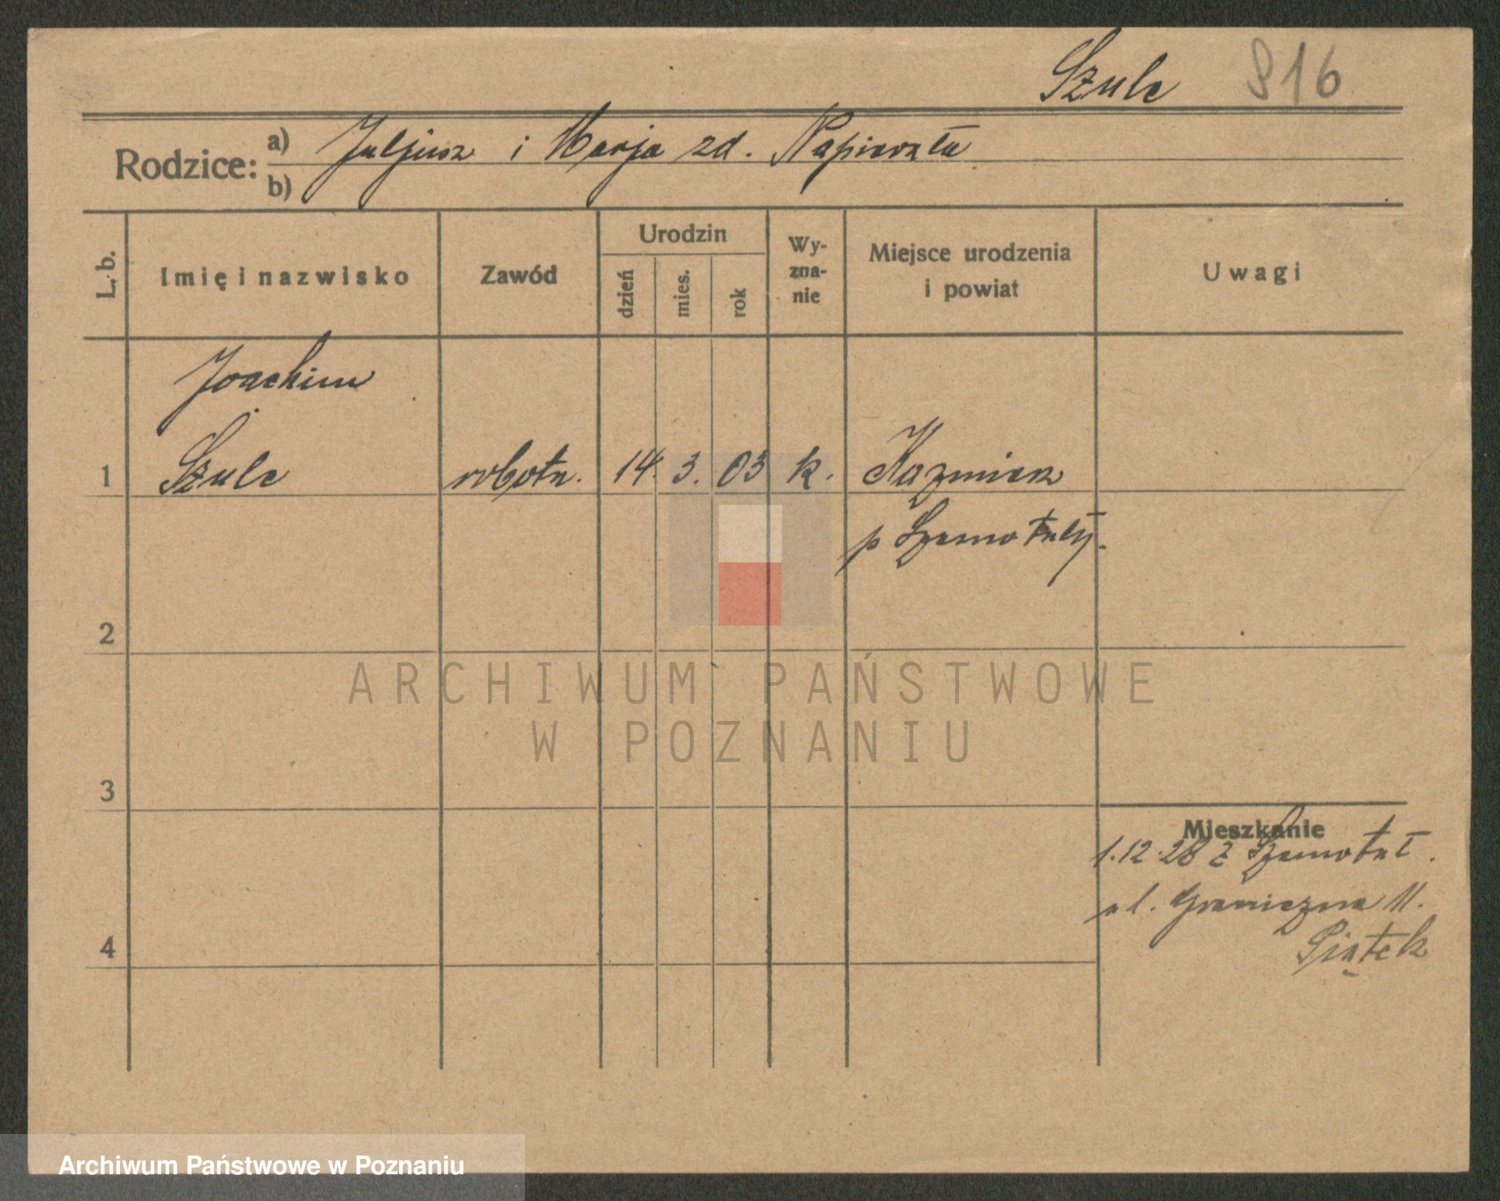 Szulc 916
Rodzice: a) Juljusz i Marja zd. Napierała
b)
L. b. Imię i nazwisko Zawód Urodzin dzień mies. rok Wy-zna-nie Miejsce urodzenia i powiat Uwagi
Joachim
1 Szulc robotn. 14. 3. 03 k. Kazmierz
p Szamotuły.
2
ARCHIWUM PAŃSTWOWE
W POZNANIU
3
Mieszkanie
1.12.28 z Szamotuł.
ul. Graniczna 11.
4 Piątek
Archiwum Państwowe w Poznaniu